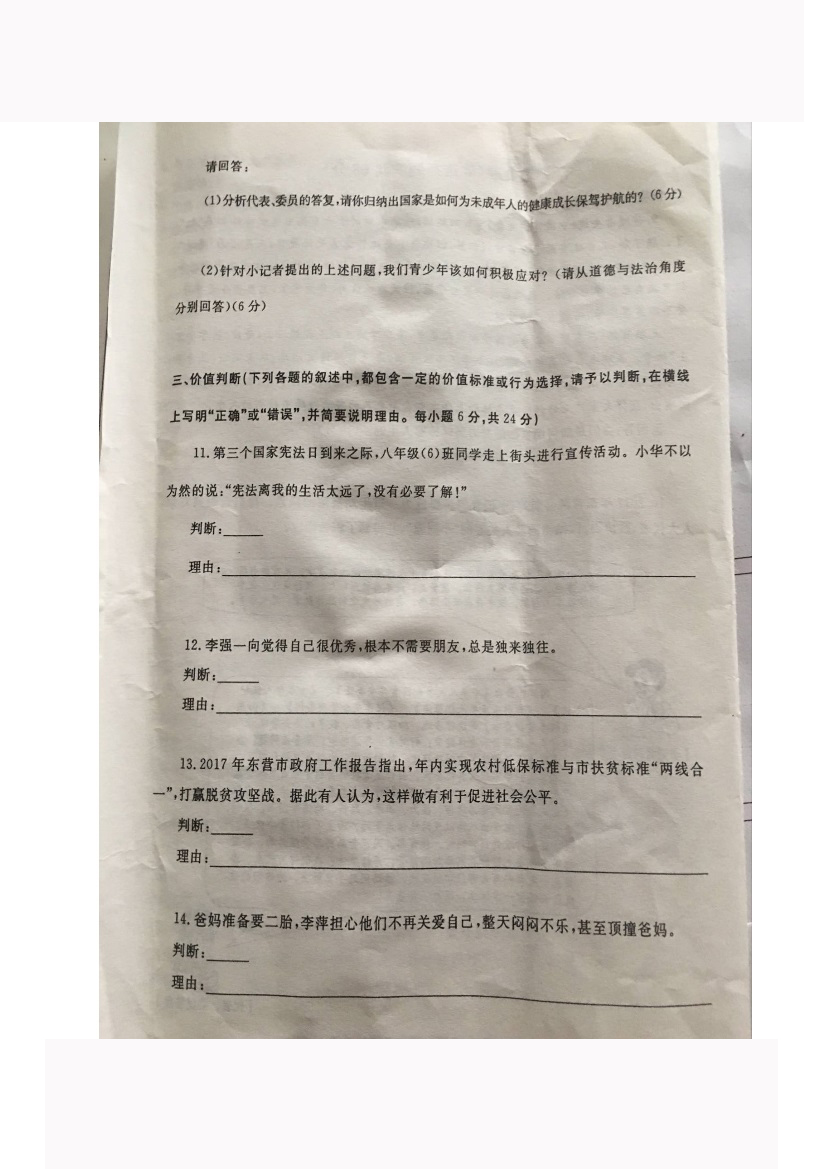 请回答：
(1)分析代表、委员的答复，请你归纳出国家是如何为未成年人的健康成长保驾护航的？(6分)
(2)针对小记者提出的上述问题，我们青少年该如何积极应对？(请从道德与法治角度
分别回答)(6分)
三、价值判断(下列各题的叙述中，都包含一定的价值标准或行为选择，请予以判断，在横线
上写明“正确”或“错误”，并简要说明理由。每小题6分，共24分)
11.第三个国家宪法日到来之际，八年级(6)班同学走上街头进行宣传活动。小华不以
为然的说：“宪法离我的生活太远了，没有必要了解！”
判断：
理由：
12.李强一向觉得自己很优秀，根本不需要朋友，总是独来独往。
判断：
理由：
13.2017年东营市政府工作报告指出，年内实现农村低保标准与市扶贫标准“两线合
一”，打赢脱贫攻坚战。据此有人认为，这样做有利于促进社会公平。
判断：
理由：
14.爸妈准备要二胎，李萍担心他们不再关爱自己，整天闷闷不乐，甚至顶撞爸妈。
判断：
理由：